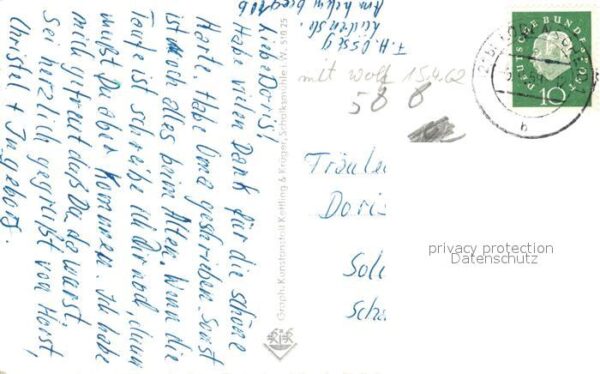 Liebe Doris!
Habe vielen Dank für die schöne
Karte. Habe Oma geschrieben. Sonst
ist noch alles beim Alten. Wenn die
Taufe ist schreibe ich Dir noch, dann
mußt Du aber kommen. Ich habe
mich gefreut daß Du da warst.
Sei herzlich gegrüßt von Horst,
Christel + Ingeborg.
mit Wolf 15.4.62
58 8
Graph. Kunstanstalt Kettling & Krüger, Schalksmühle i. W. 51925
K&K
DEUTSCHE BUNDESPOST
10
h
Fräule
Doris
Sol
Scha
privacy protection
Datenschutz